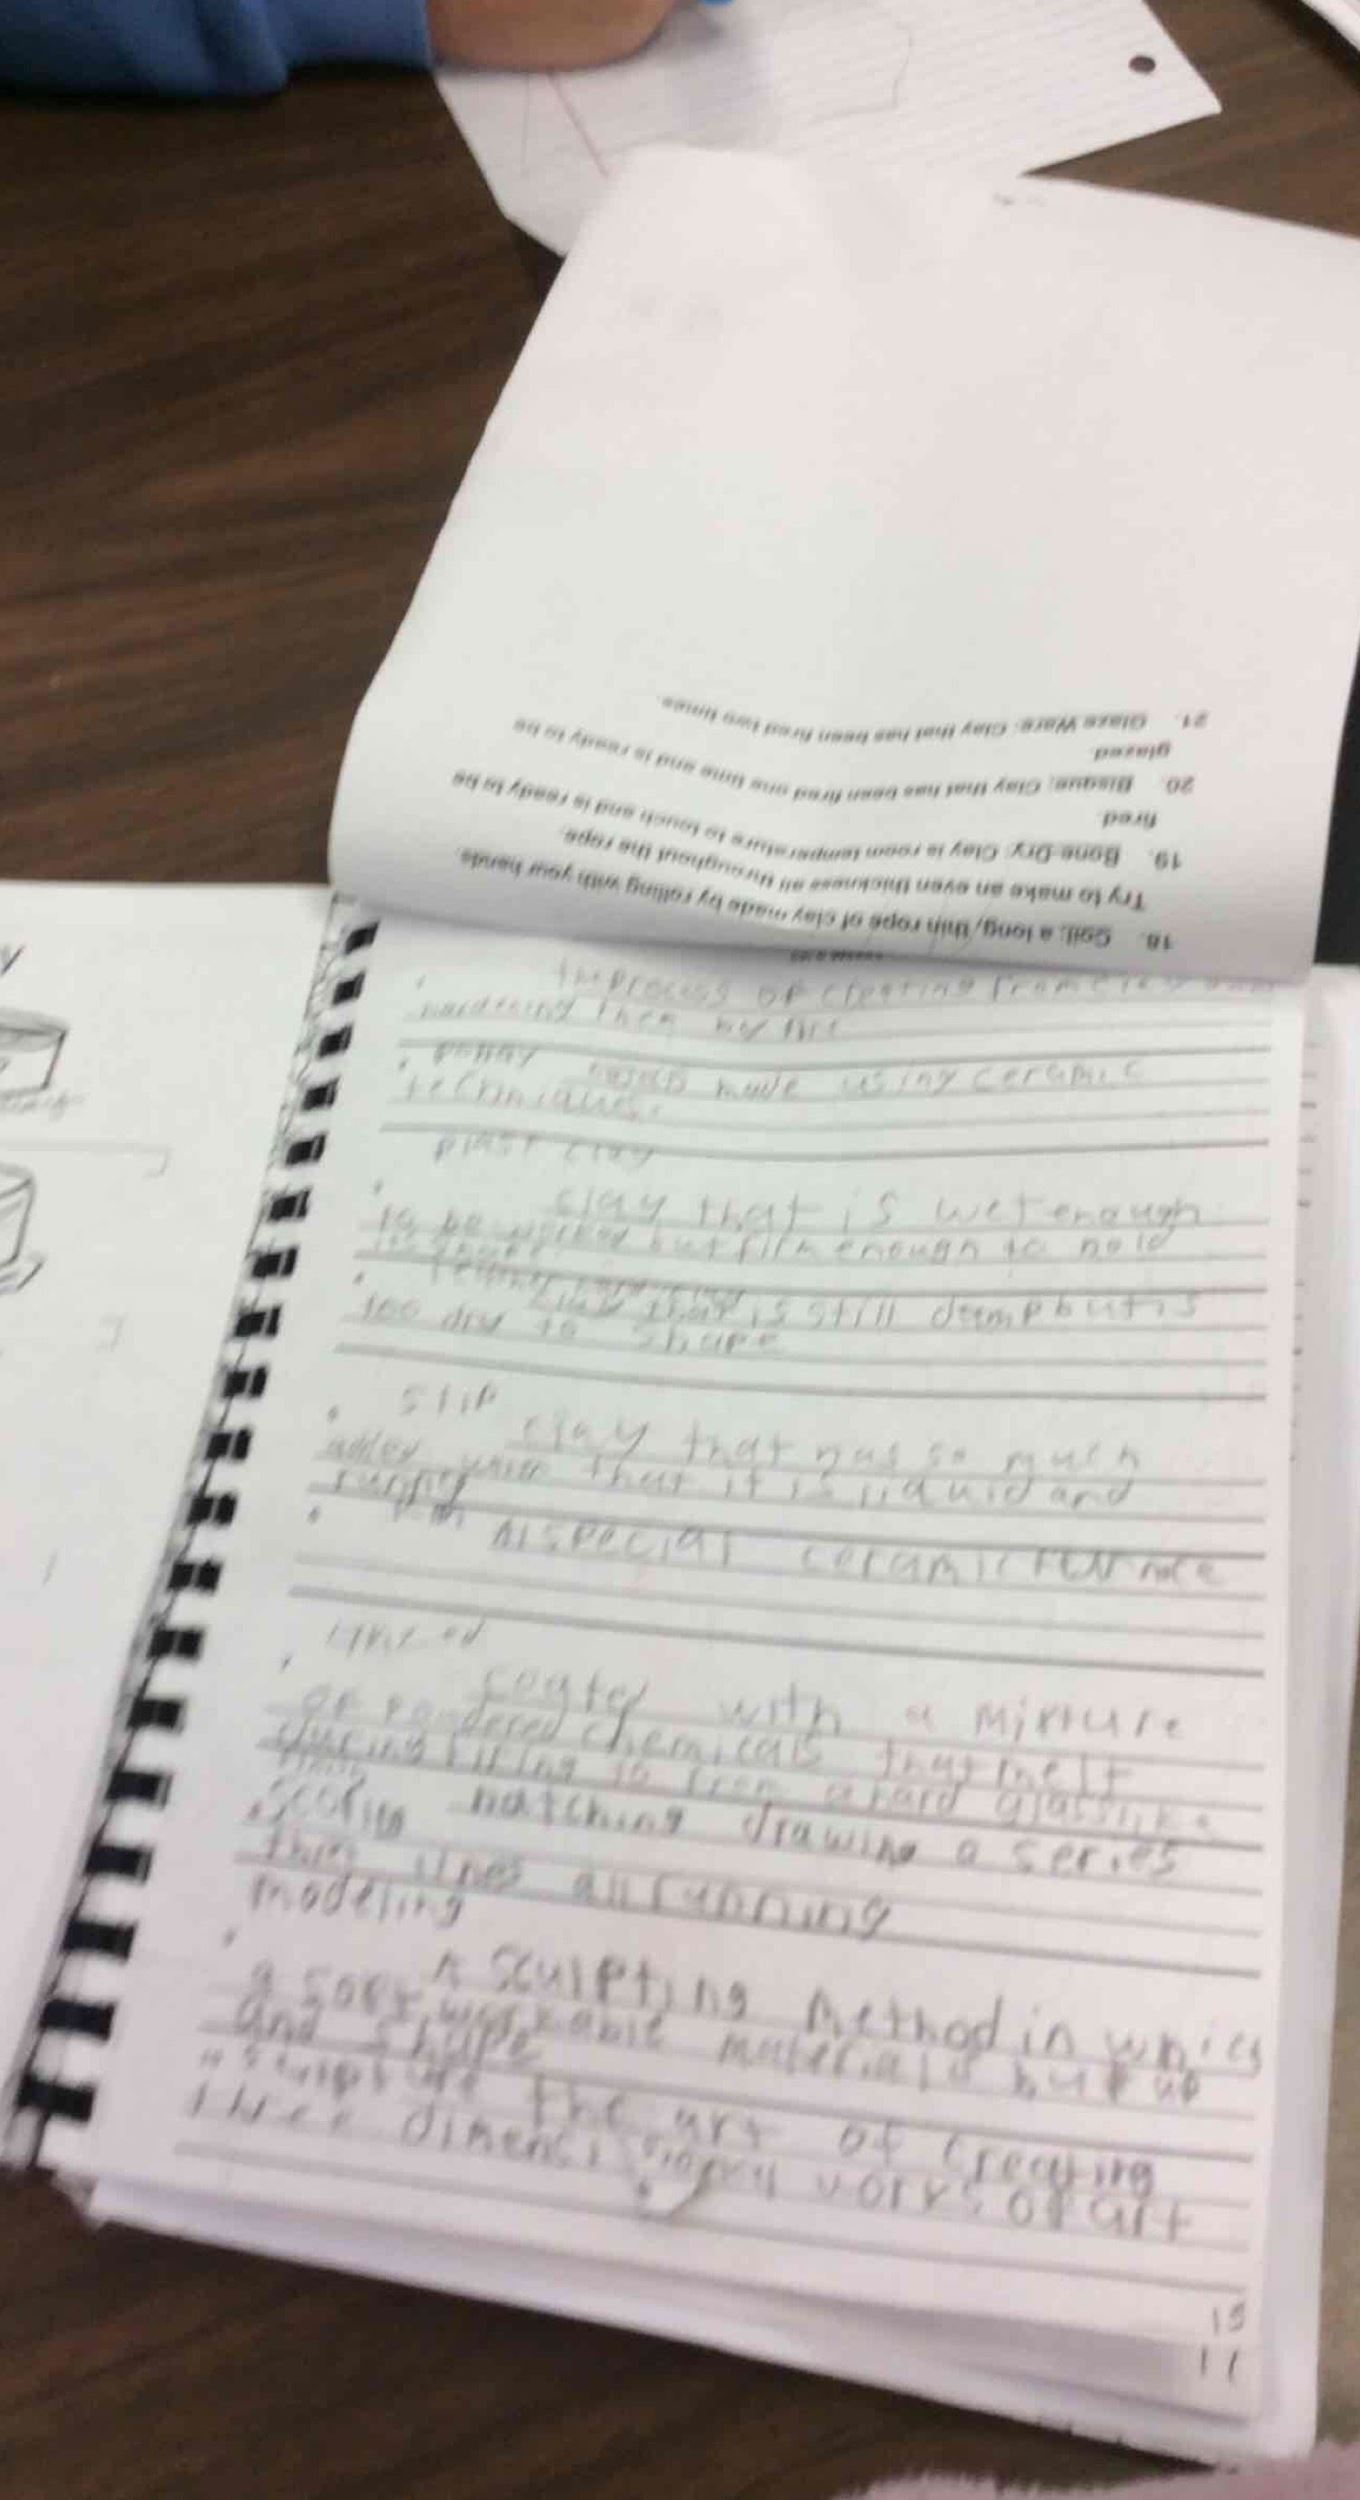 18. Coil: a long, thin rope of clay made by rolling with your hands.
Try to make an even thickness all throughout the rope.
19. Bone Dry: Clay is room temperature to touch and is ready to be
fired
20. Bisque: Clay that has been fired one time and is ready to be
glazed
21. Glaze Ware: Clay that has been fired two times.
the process of creating from clay
hardening then by fire
made using ceramic
techniques.
clay
clay that is wet enough
to be worked but firm enough to hold
its shape.
clay that is still damp but is
too dry to shape
slip
clay that has so much
added water that it is liquid and
runny
special ceramic
coated with a mixture
of powdered chemicals that melt
during firing to from a hard glasslike
hatching drawing a series
lines all running
modeling
A sculpting method in which
a soft, workable material is
and shape
sculpture the art of creating
three works of art
15